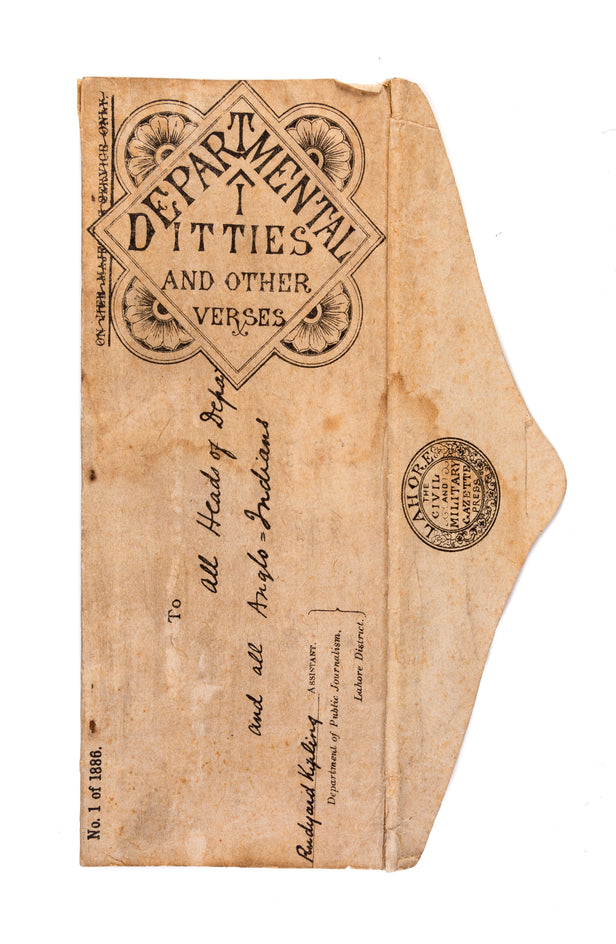 ON HER MAJESTY'S SERVICE ONLY.
DEPARTMENTAL
DITTIES
AND OTHER
VERSES
No. 1 of 1886.
To
All Heads of Depar
and all Anglo=Indians
Rudyard Kipling ASSISTANT.
Department of Public Journalism.
Lahore District.
LAHORE
THE
CIVIL
AND
MILITARY
GAZETTE
PRESS